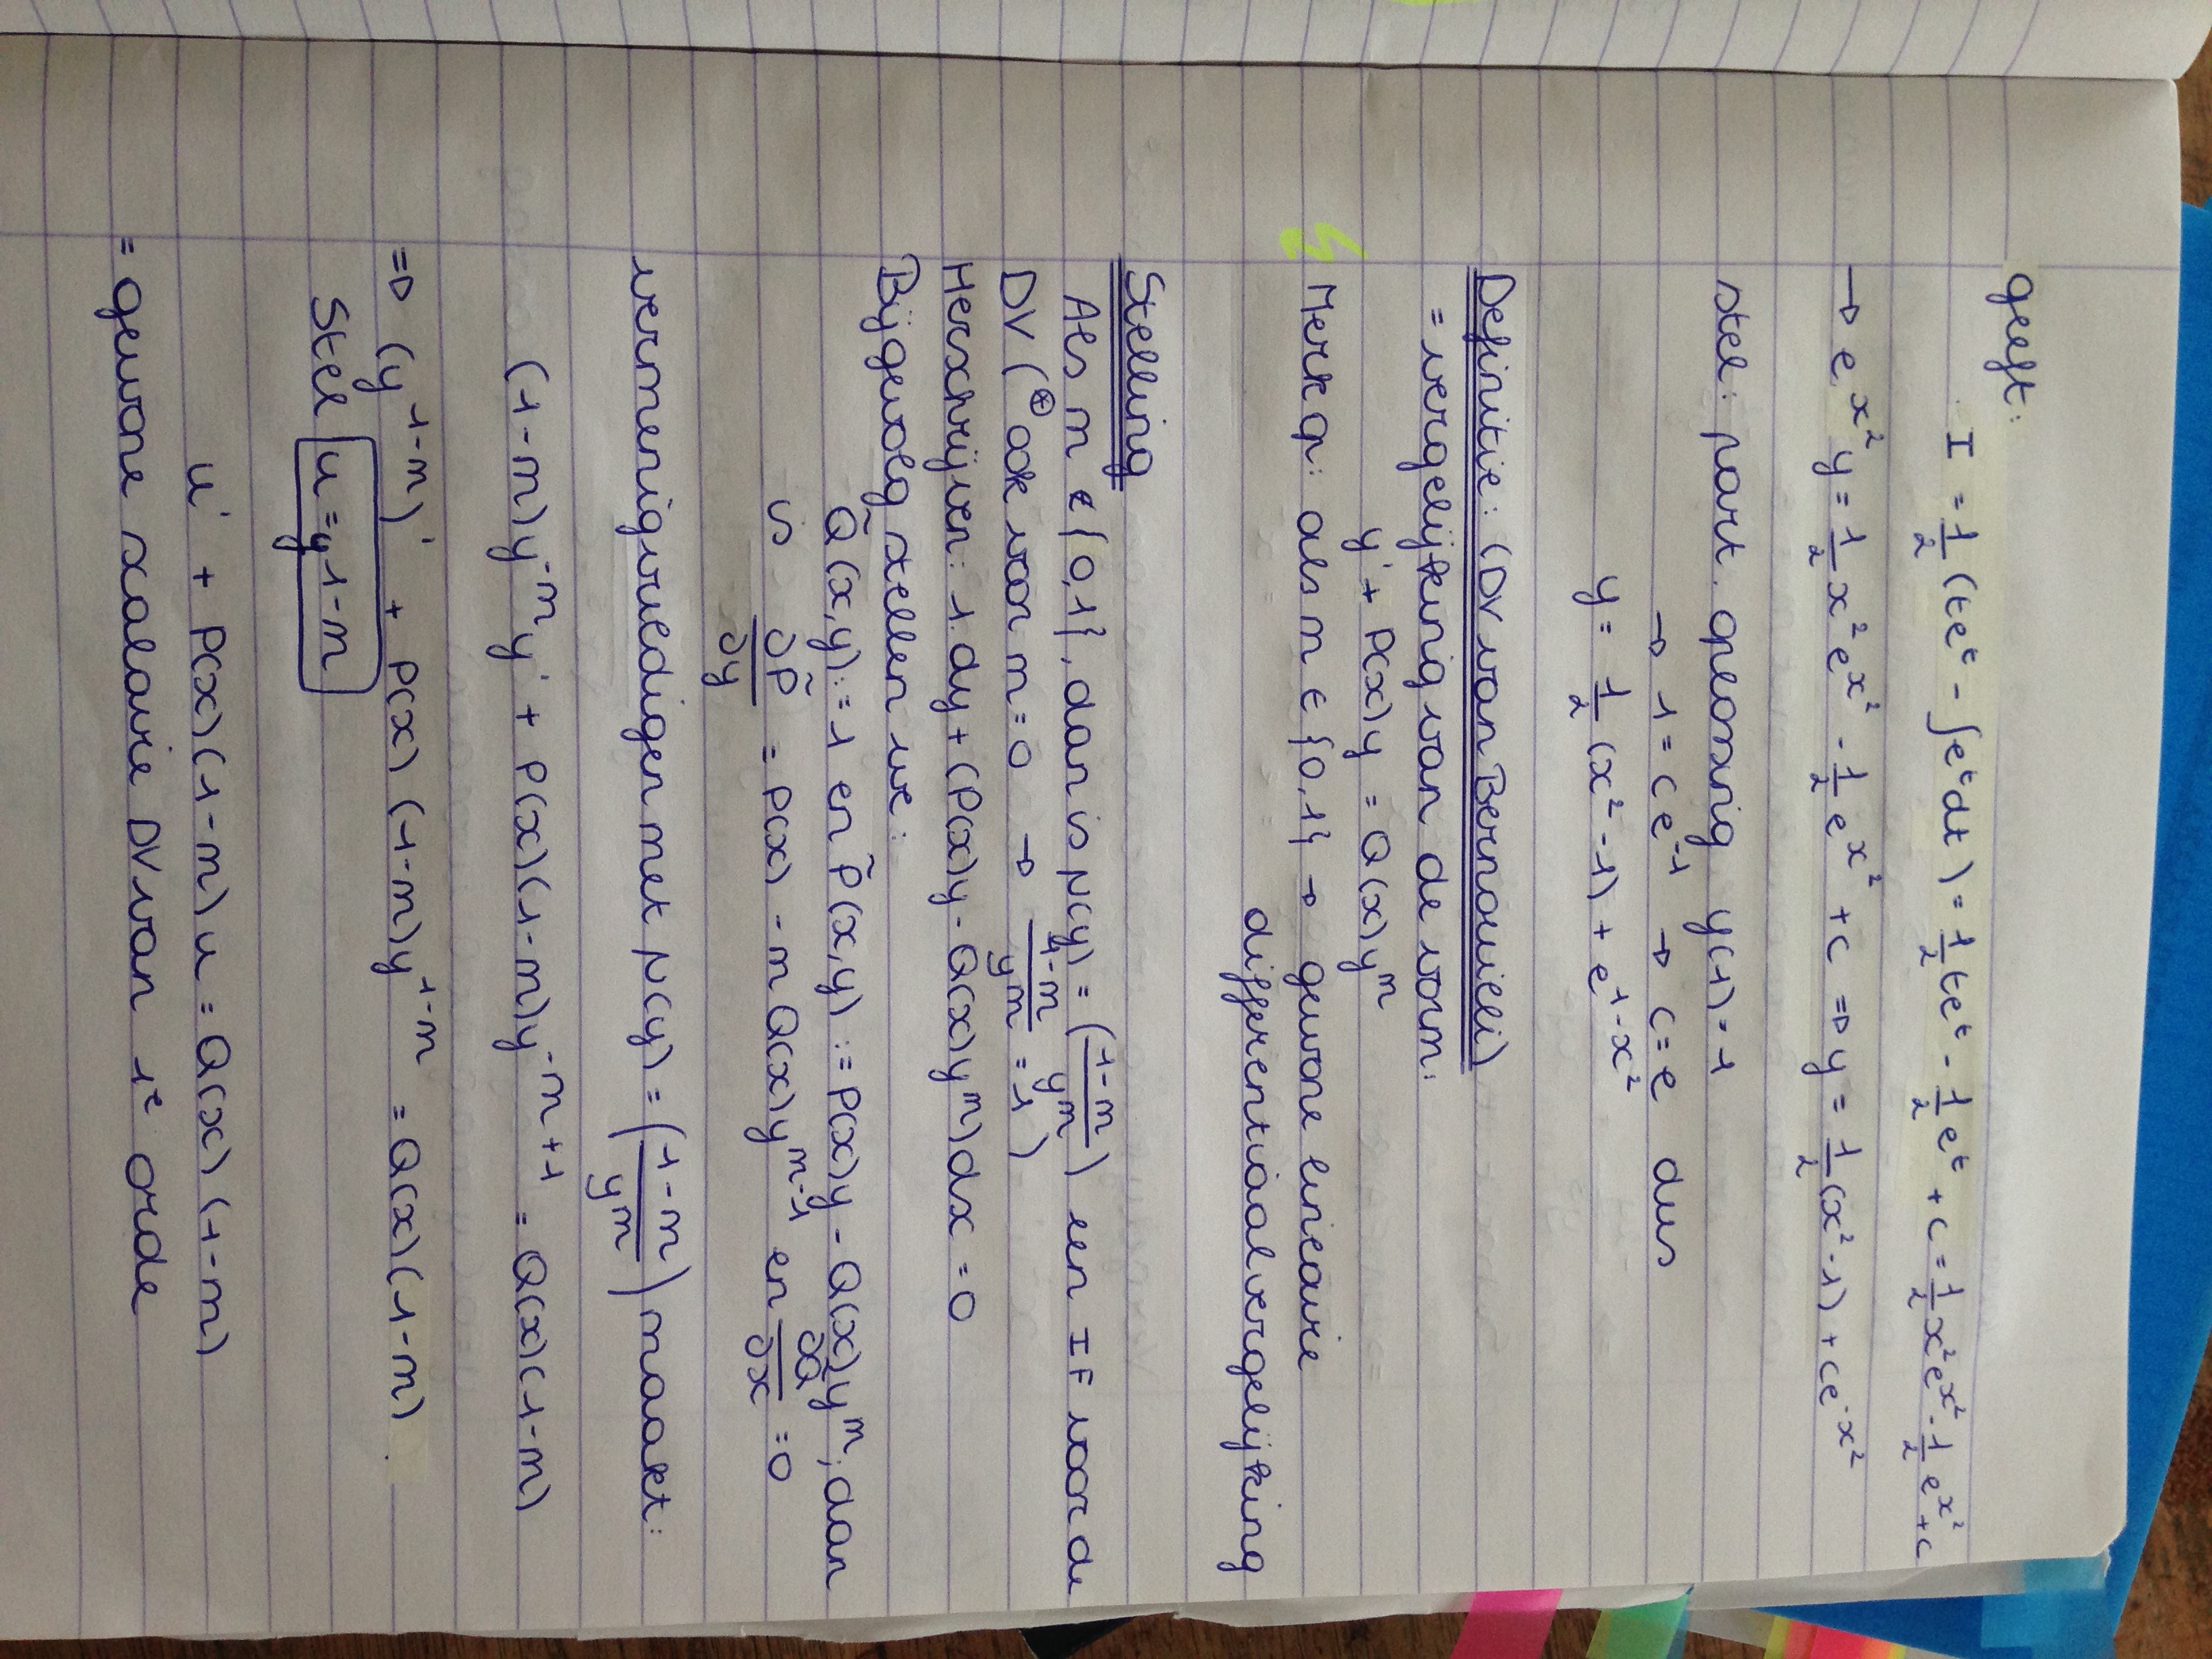 geeft:
I = 1/2 (te^t - ∫e^t dt) = 1/2 te^t - 1/2 e^t + c = 1/2 x² e^x² - 1/2 e^x² + c
→ e^x² y = 1/2 x² e^x² - 1/2 e^x² + c ⇒ y = 1/2 (x² - 1) + ce^-x²
stel: part. oplossing y(1) = 1
→ 1 = ce^-1 → c = e dus
y = 1/2 (x² - 1) + e^1-x²
Definitie: (DV van Bernouilli)
= vergelijking van de vorm:
y' + P(x)y = Q(x)y^m
Merk op: als m ∈ {0,1} → gewone lineaire
differentiaalvergelijking
Stelling
Als m ∉ {0,1}, dan is μ(y) = ((1-m)/y^m) een IF voor de
DV (⊕ ook voor m = 0 → (1-m)/y^m = 1)
Herschrijven: 1. dy + (P(x)y - Q(x)y^m)dx = 0
Bijgevolg stellen we:
Q̃(x,y) := 1 en P̃(x,y) := P(x)y - Q(x)y^m; dan
is ∂P̃/∂y = P(x) - m Q(x)y^m-1 en ∂Q̃/∂x = 0
vermenigvuldigen met μ(y) = ((1-m)/y^m) maakt:
(1-m)y^-m y' + P(x)(1-m)y^-m+1 = Q(x)(1-m)
⇒ (y^1-m)' + P(x) (1-m)y^1-m = Q(x)(1-m).
Stel u = y^1-m
u' + P(x)(1-m)u = Q(x) (1-m)
= gewone scalaire DV van 1e orde